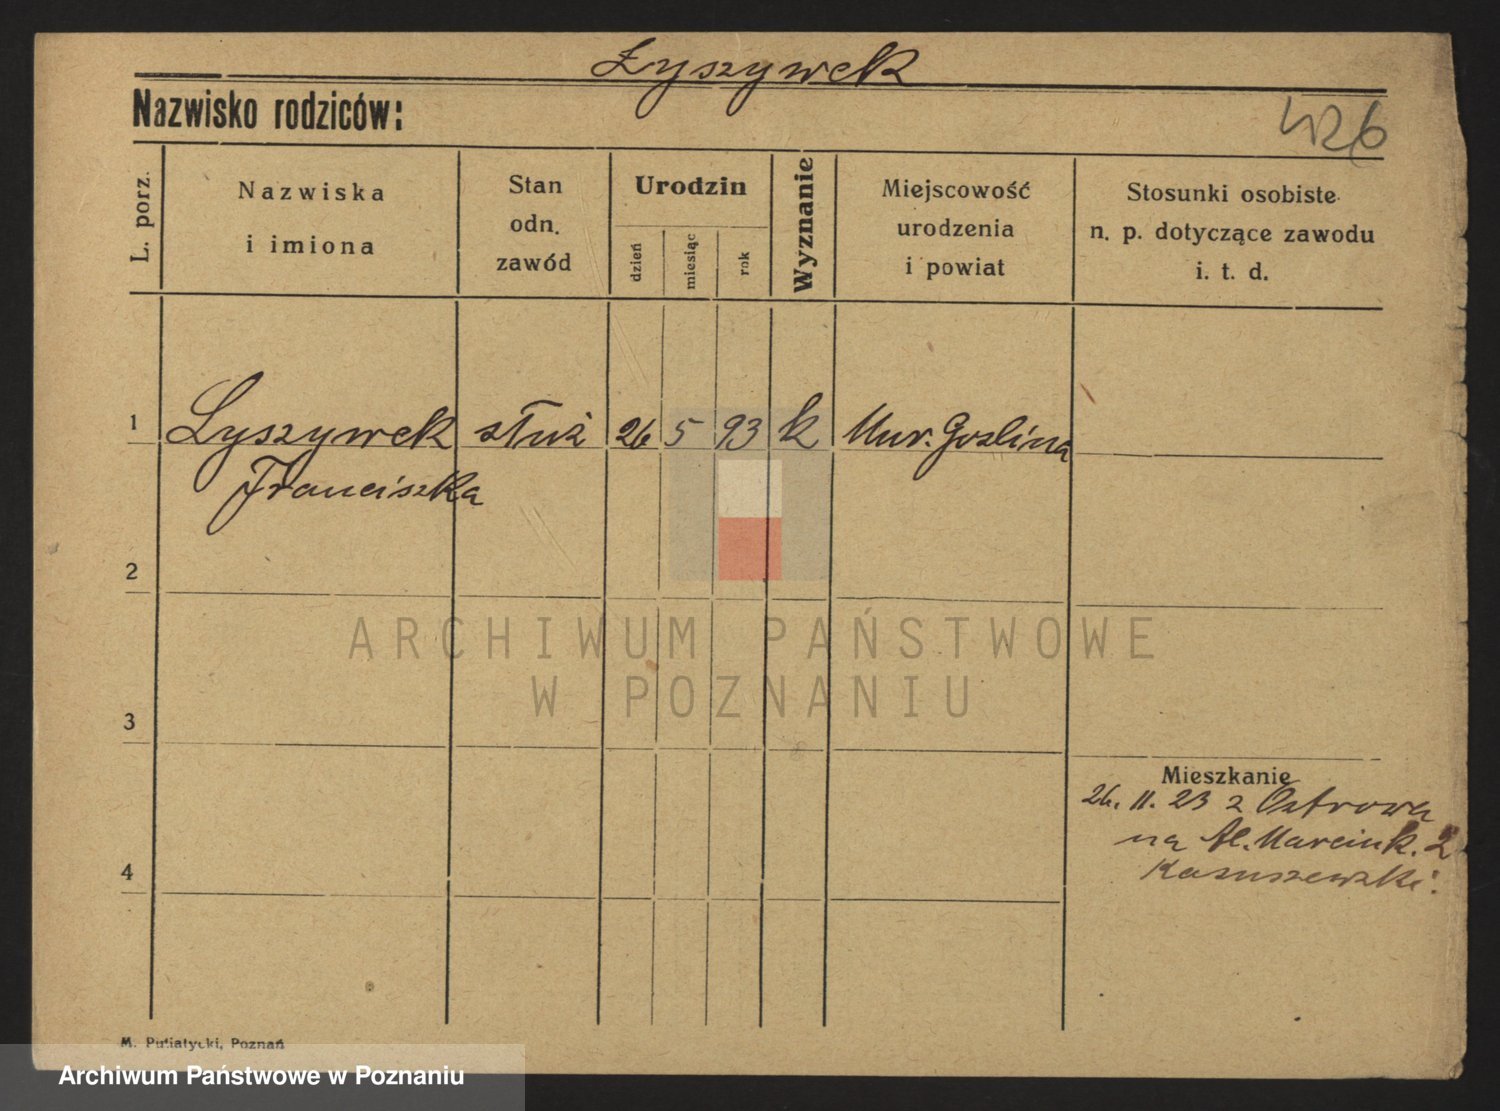 Łyszywek
Nazwisko rodziców:
426
L. porz.
Nazwiska
i imiona
Stan
odn.
zawód
Urodzin
dzień
miesiąc
rok
Wyznanie
Miejscowość
urodzenia
i powiat
Stosunki osobiste
n. p. dotyczące zawodu
i. t. d.
1
Łyszywek służ 26 5 93 k Mur. Goślina
Franciszka
2
ARCHIWUM PAŃSTWOWE
W POZNANIU
3
Mieszkanie
26. 11. 23 z Ostrowa
na Al. Marcink. 2
4
M. Putiatycki, Poznań
Archiwum Państwowe w Poznaniu